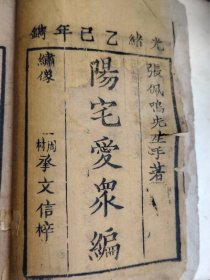 光緒乙巳年鐫
張佩鳴先生手著
陽宅愛衆編
繡像
周村承文信梓